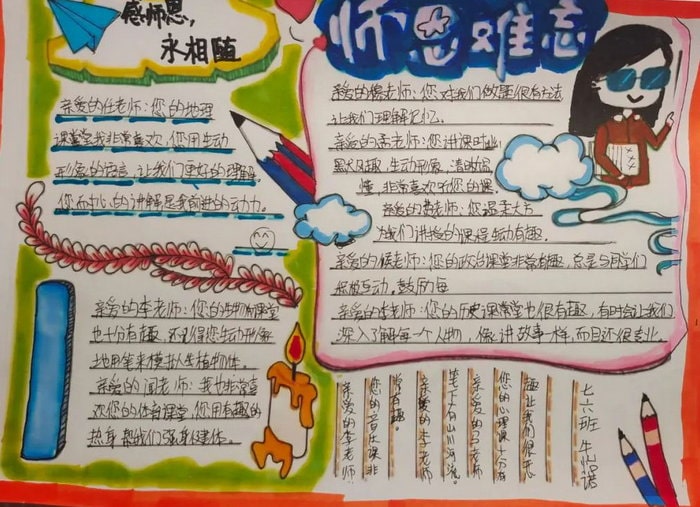 感师恩,
永相随
师恩难忘
亲爱的任老师:您的地理
课堂我非常喜欢,您用生动
形象的语言,让我们更好的理解
您耐心的讲解是我前进的动力。
亲爱的李老师:您的生物课堂
也十分有趣,不记得您生动形象
地用笔来模拟人生植物体。
亲爱的闻老师:我也非常喜
欢您的体育课堂,您用有趣的
热身,帮我们强身健体。
亲爱的杨老师:您对我们做题很有方法
让我们理解记忆。
亲爱的孟老师:您讲课时幽
默风趣,生动形象,清晰易
懂,非常喜欢听您的课。
亲爱的老师:您温柔大方
为我们讲授的课程生动有趣。
亲爱的侯老师:您的政治课堂非常有趣,总是与同学们
积极互动,鼓励每
亲爱的李老师:您的历史课堂也很有趣,有时会让我们
深入了解每一个人物,像讲故事一样,而且还很专业。
亲爱的李老师
您的音乐课非
常有趣。
亲爱的牛老师
笔下有山川河流。
亲爱的马老师
您的心理课十分有
趣让我们很开
七六班 牛怡诺